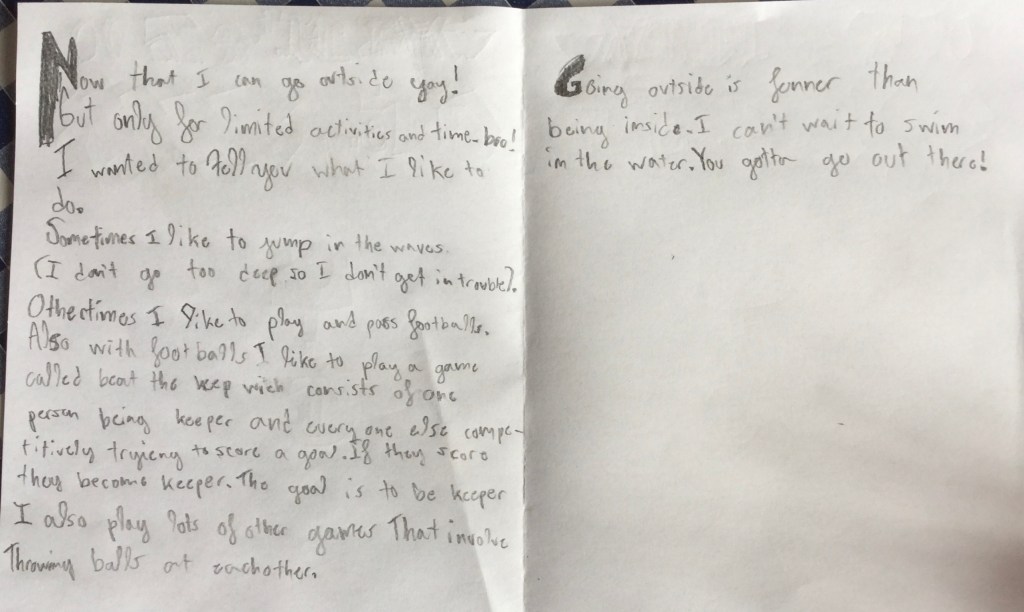 Now that I can go outside yay!
but only for limited activities and time-boo!
I wanted to tell you what I like to
do.
Sometimes I like to jump in the waves.
(I don't go too deep so I don't get in trouble).
Othertimes I like to play and pass footballs.
Also with footballs I like to play a game
called beat the keep wich consists of one
person being keeper and every one else compe-
titively tryieng to score a goal. If they score
they become keeper. The goal is to be keeper
I also play lots of other games That involve
Throwing balls at eachother.
Going outside is funner than
being inside. I can't wait to swim
in the water. You gotta go out there!